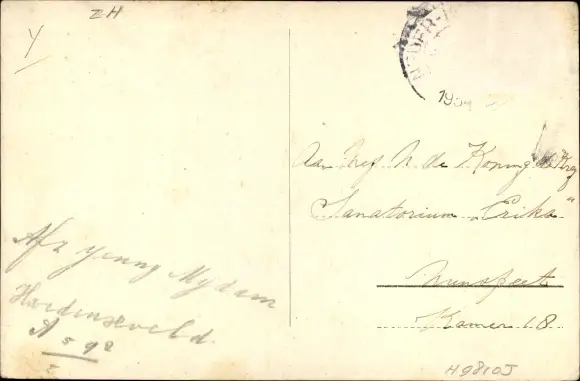 ZH
Y
NEDER-
193
Aan Mej N de Koning de
Sanatorium „Erika"
Nunspeet
Kamer 18
Afz Jenny Mydam
Hardinxveld
A 592
H9810J